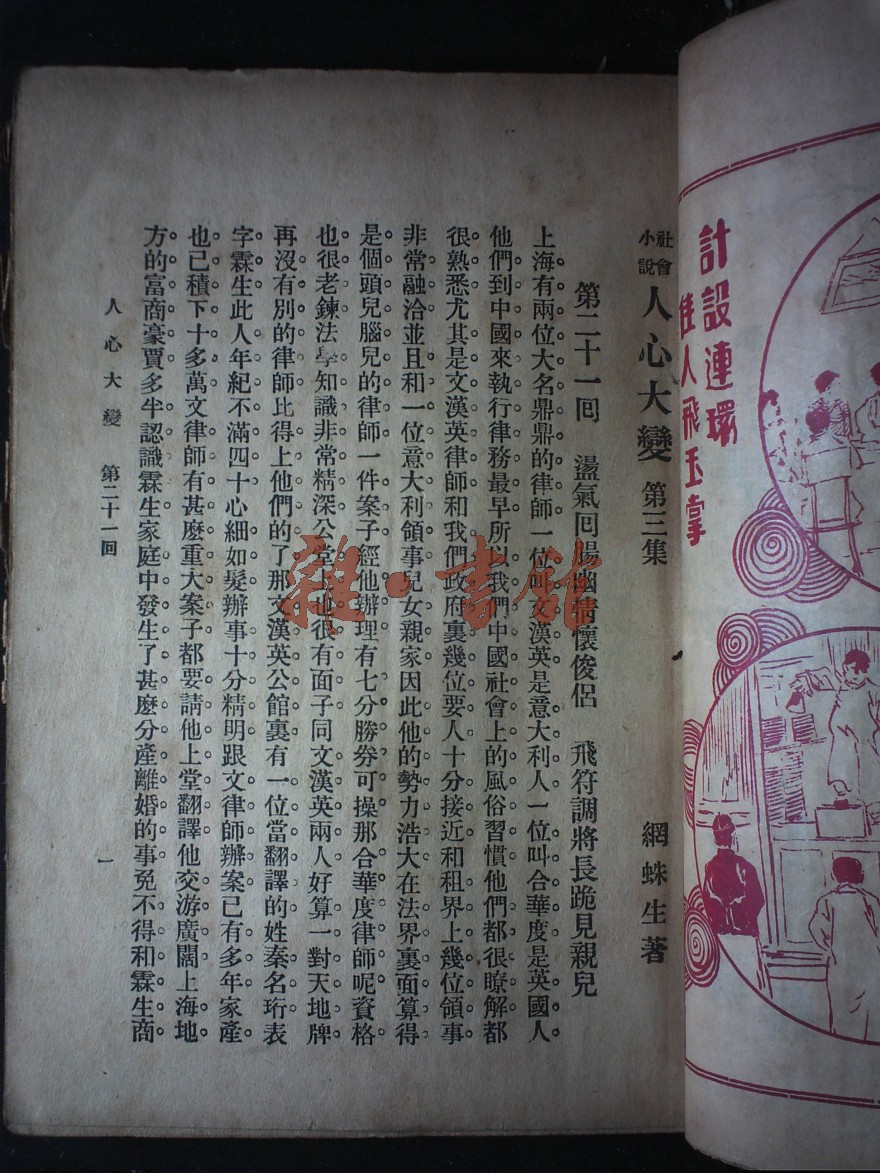 計設連環
佳人飛玉掌
社會
小說
人心大變 第三集
網蛛生著
第二十一回 盪氣回腸幽情懷俊侶 飛符調將長跪見親兒
上海有兩位大名鼎鼎的律師。一位叫文漢英是意大利人。一位叫合華度是英國人。
他們到中國來執行律務最早。所以我們中國社會上的風俗習慣。他們都很瞭解。都
很熟悉。尤其是文漢英律師。和我們政府裏幾位要人十分接近。和租界上幾位領事
非常融洽。並且和一位意大利領事兒女親家。因此他的勢力浩大。在法界裏面算得
是個頭兒腦兒的律師。一件案子經他辦理。有七分勝劵可操。那合華度律師呢。資格
也很老鍊。法學知識非常精深。公堂上也很有面子。同文漢英兩人好算一對天地牌。
再沒有別的律師比得上他們的了。那文漢英公館裏有一位當翻譯的。姓秦名珩。表
字霖生。此人年紀不滿四十。心細如髮。辦事十分精明。跟文律師辦案已有多年。家產
也已積下十多萬。文律師有甚麽重大案子。都要請他上堂翻譯。他交游廣闊。上海地
方的富商豪賈。多半認識霖生。家庭中發生了甚麽分產離婚的事。免不得和霖生商
人心大變 第二十一回
一
雜·書館